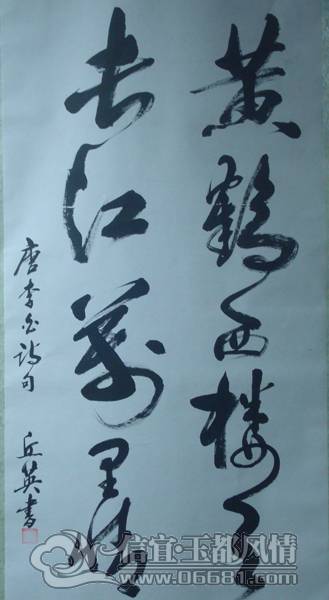 黄鶴西樓月
長江萬里情
唐李白詩句 丘英書
信宜·玉都风情
www.06681.com